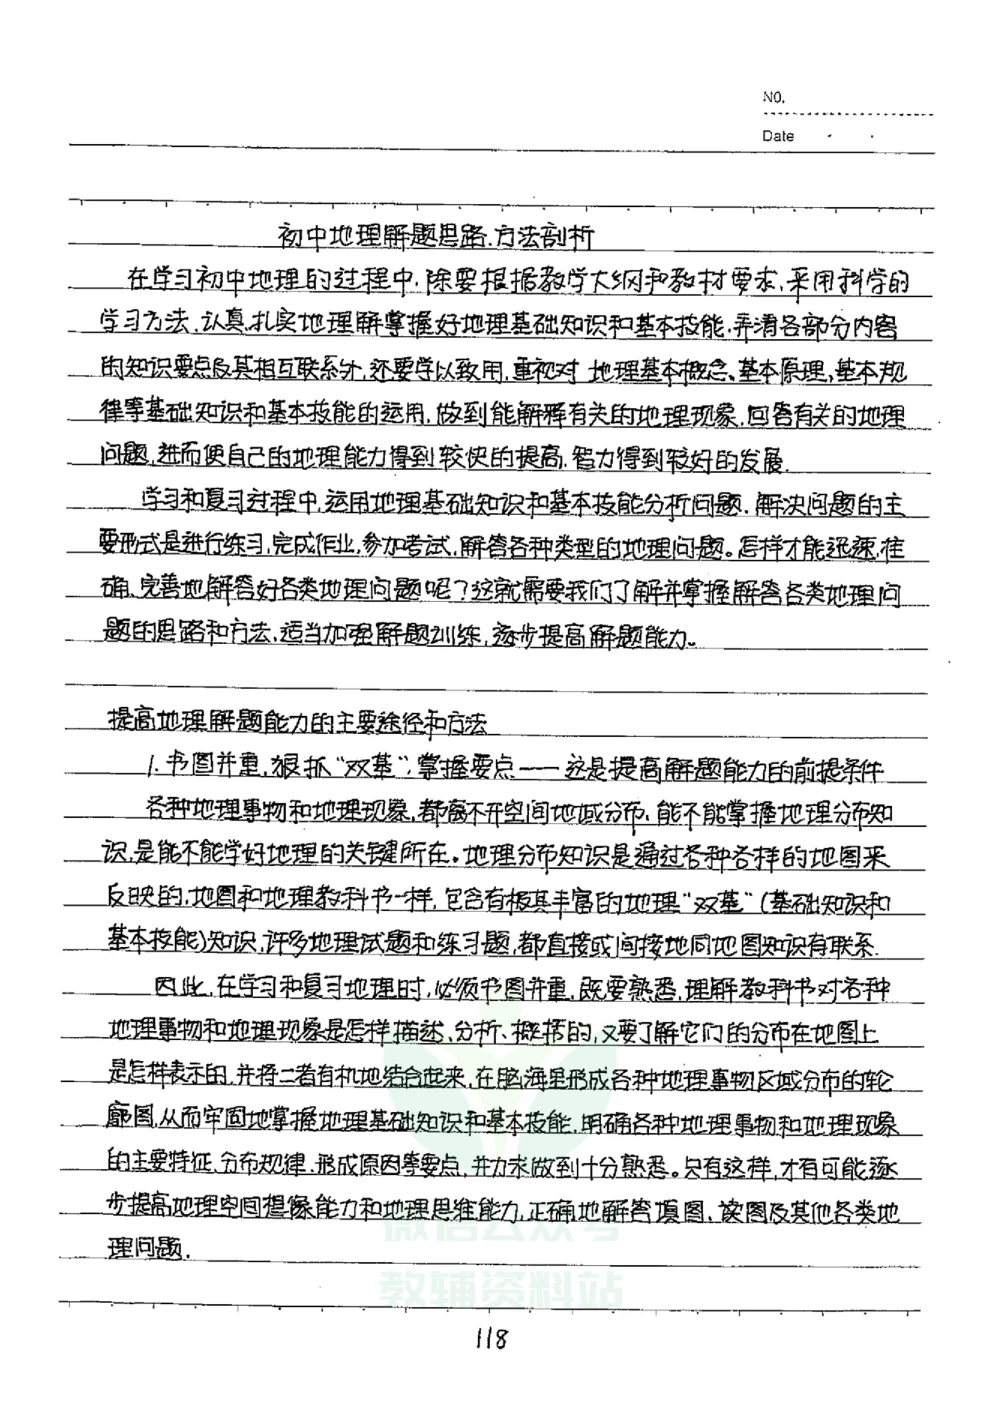 NO.
Date
初中地理解题思路、方法剖析
在学习初中地理的过程中,除要根据教学大纲和教材要求,采用科学的
学习方法,认真、扎实地理解掌握好地理基础知识和基本技能,弄清各部分内容
的知识要点及其相互联系外,还要学以致用,重视对地理基本概念、基本原理、基本规
律等基础知识和基本技能的运用,做到能解释有关的地理现象,回答有关的地理
问题,进而使自己的地理能力得到较快的提高,智力得到较好的发展.
学习和复习过程中,运用地理基础知识和基本技能分析问题、解决问题的主
要形式是进行练习,完成作业,参加考试,解答各种类型的地理问题。怎样才能迅速、准
确、完善地解答好各类地理问题呢?这就需要我们了解并掌握解答各类地理问
题的思路和方法,适当加强解题训练,逐步提高解题能力。
提高地理解题能力的主要途径和方法
1.书图并重,狠抓“双基”,掌握要点——这是提高解题能力的前提条件
各种地理事物和地理现象,都离不开空间地域分布,能不能掌握地理分布知
识,是能不能学好地理的关键所在。地理分布知识是通过各种各样的地图来
反映的,地图和地理教科书一样,包含有极其丰富的地理“双基”(基础知识和
基本技能)知识,许多地理试题和练习题,都直接或间接地同地图知识有联系.
因此,在学习和复习地理时,必须书图并重,既要熟悉、理解教科书对各种
地理事物和地理现象是怎样描述、分析、概括的,又要了解它们的分布在地图上
是怎样表示的,并将二者有机地结合起来,在脑海里形成各种地理事物区域分布的轮
廓图,从而牢固地掌握地理基础知识和基本技能,明确各种地理事物和地理现象
的主要特征、分布规律、形成原因等要点,并力求做到十分熟悉。只有这样,才有可能逐
步提高地理空间想像能力和地理思维能力,正确地解答填图、读图及其他各类地
理问题.
微信公众号
教辅资料站
118